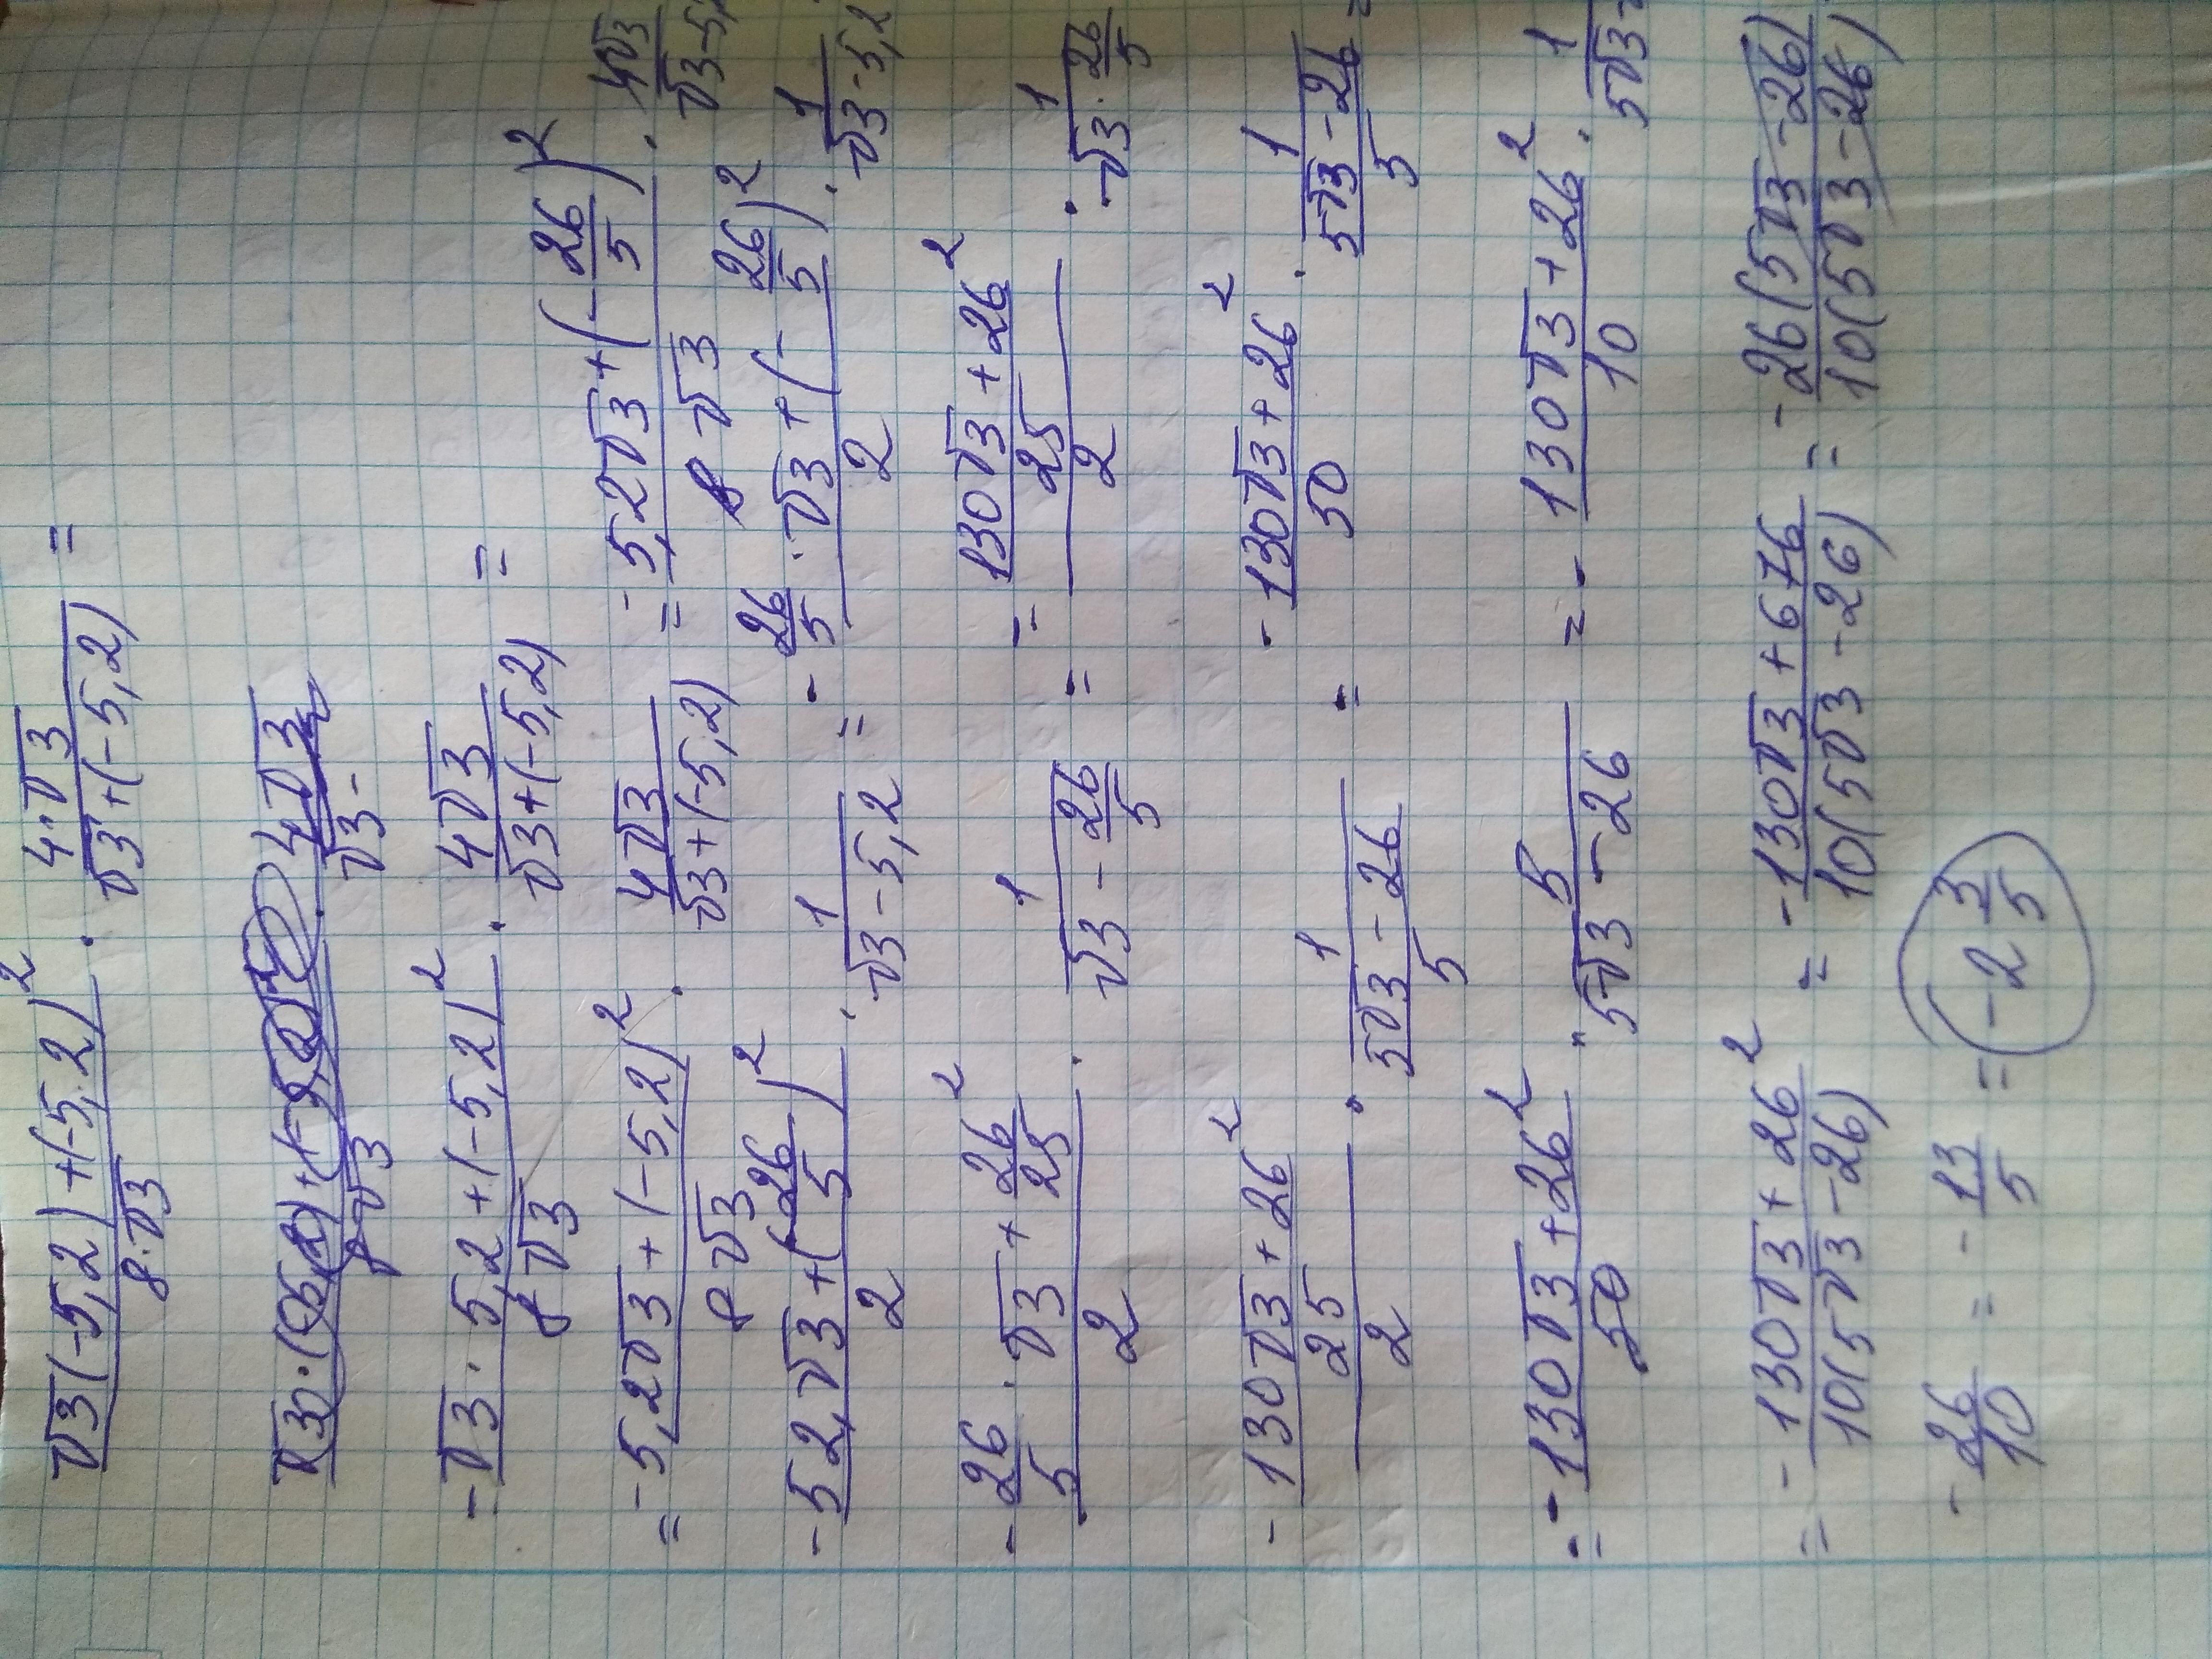 √3(-5,2)+(-5,2)²/8·√3 · 4·√3/√3+(-5,2) =
4√3/√3-
-√3·5,2+(-5,2)²/8√3 · 4√3/√3+(-5,2) =
= -5,2√3+(-5,2)²/8√3 · 4√3/√3+(-5,2) = -5,2√3+(-26/5)²/8√3 · 4√3/√3-5,
-5,2√3+(-26/5)²/2 · 1/√3-5,2 = -26/5·√3+(-26/5)²/2 · 1/√3-5,2
-26/5·√3+26²/25/2 · 1/√3-26/5 = -130√3+26²/25/2 · 1/√3·26/5
-130√3+26²/25/2 · 1/5√3-26/5 = -130√3+26²/50 · 1/5√3-26/5 =
= -130√3+26²/50 · 5/5√3-26 = -130√3+26²/10 · 1/5√3-
= -130√3+26²/10(5√3-26) = -130√3+676/10(5√3-26) = -26(5√3-26)/10(5√3-26)
-26/10 = -13/5 = -2 3/5